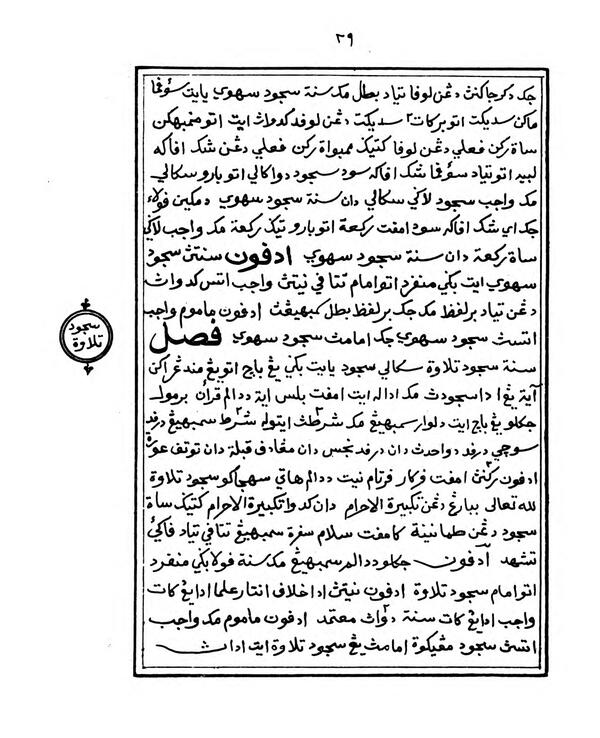 ٢٩
جك دكرجاكنث دڠن لوفا تياد بطل مك سنة سجود سهوي يايت سؤڤما
ماكن سديكت اتو بركات٢ سديكت دڠن لوفد كدواث ايت اتو منمبهكن
ساة ركن فعلي دڠن لوفا كتيك ممبواة ركن فعلي دڠن شك افاكه
لبيه اتو تياد سؤڤما شك افاكه سود سجود دوا كالي اتو بارو سكالي
مك واجب سجود لاݢي سكالي دان سنة سجود سهوي دمكين فولاء
جك اي شك افاكه سود امفت ركعة اتو بارو تيݢ ركعة مك واجب لاݢي
ساة ركعة دان سنة سجود سهوي ادفون سنتث سجود
سهوي ايت بݢي منفرد اتو امام تتافي نيتث واجب اتس كدواث
دڠن تياد برلفظ مك جك برلفظ بطل سمبهيڠث ادفون ماموم واجب
اتسث سجود سهوي جك امامث سجود سهوي فصل
سنة سجود تلاوة سكالي سجود يايت بݢي يڠ باچ اتو يڠ مندڠراكن
آية يڠ اد اسجودث مك اداله ايت امفت بلس اية ددالم قرآن برمول
جكلو يڠ باچ ايت دلوار سمبهيڠ مك شرطث ايتوله شرط سمبهيڠ درفد
سوچي درفد حدث دان درفد نجس دان مڠادف قبلة دان توتف عورة
ادفون ركنث امفت فركار فرتام نيت ددالم هاتي سهجاكو سجود تلاوة
لله تعالى ببارڠ دڠن تكبيرة الاحرام دان كدوا تكبيرة الاحرام كتيݢ ساة
سجود دڠن طمانينة كامفت سلام سفرة سمبهيڠ تتافي تياد فاكي
تشهد ادفون جكلو ددالم سمبهيڠ مك سنة فولا بݢي منفرد
اتو امام سجود تلاوة ادفون نيتث اد اخلاف انتار علما اد ايڠ كات
واجب اد ايڠ كات سنة دواث معتمد ادفون ماموم مك واجب
اتسث سجود مڠيكوة امامث يڠ سجود تلاوة ايت اداث
سجود
تلاوة